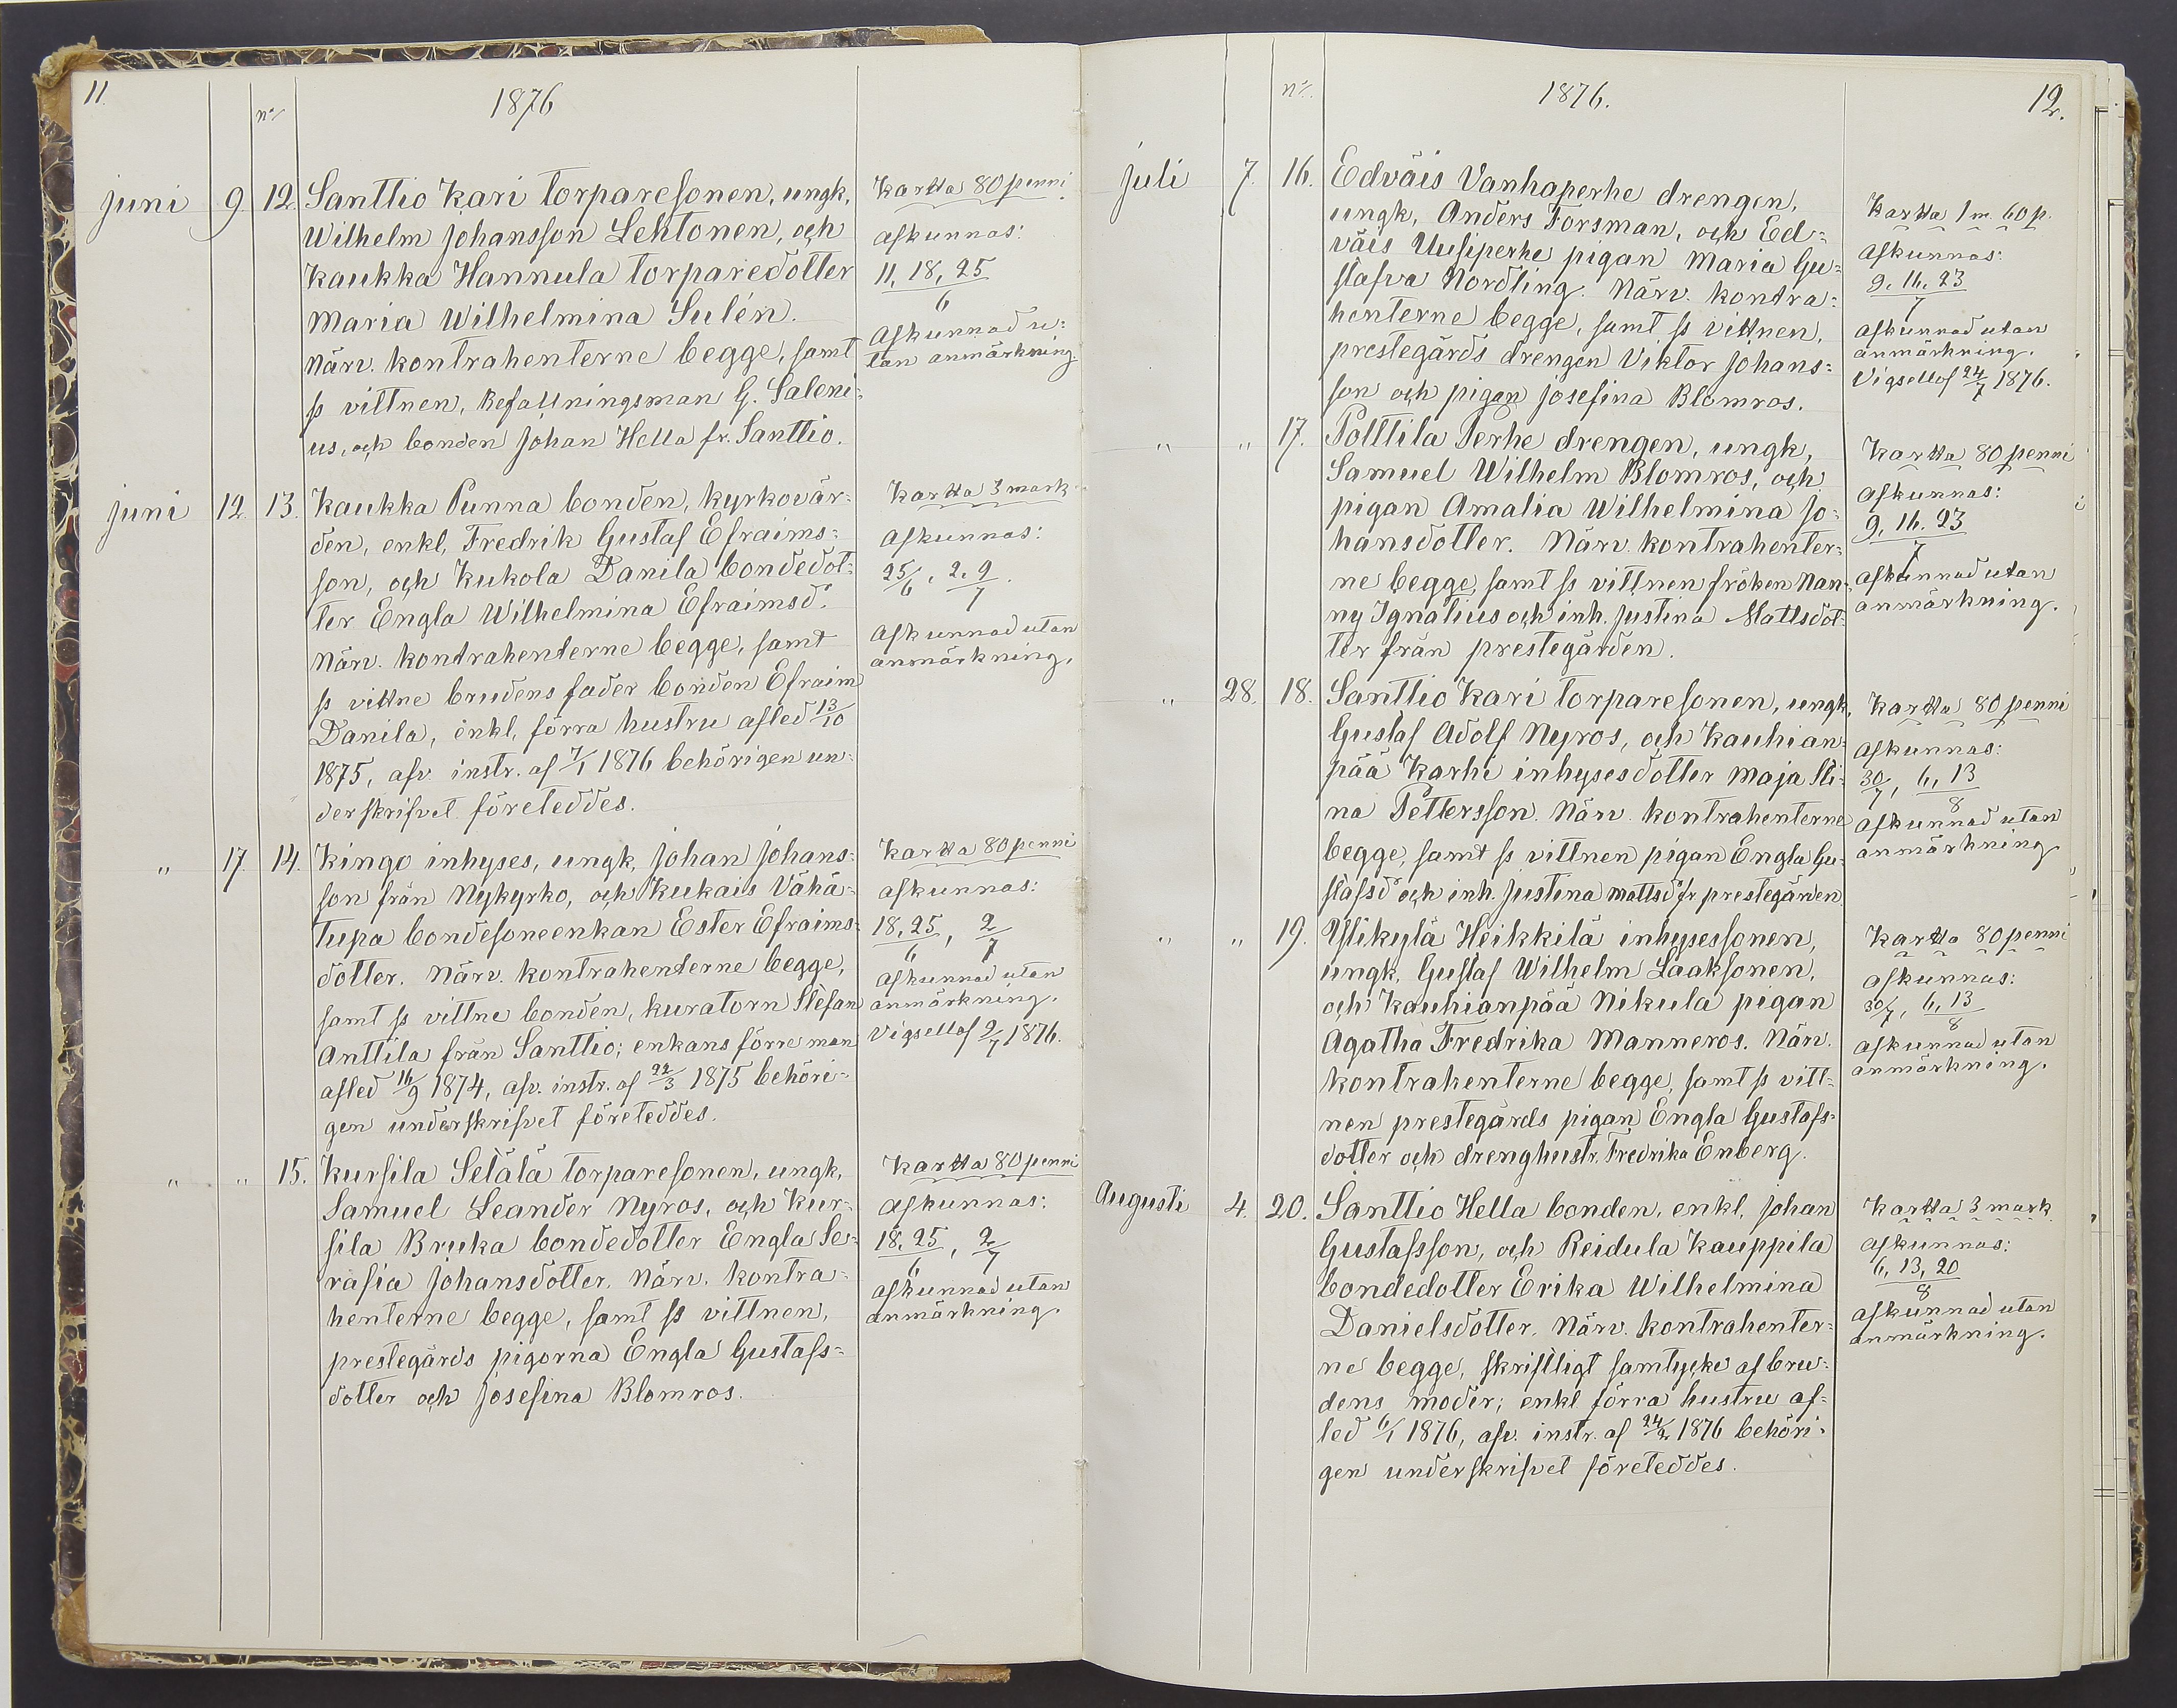 11.
n:o
1876
juni 9. 12. Santtio Kari torparesonen, ungk.
Wilhelm Johansson Lehtonen, och
Kaukka Hannula torparedotter
Maria Wilhelmina Sulén.
Närv. kontrahenterne begge, samt
ss vittnen, Befallningsman G. Saleni-
us, och bonden Johan Hella fr. Santtio.
Kartta 80 penni
Afkunnas:
11, 18, 25
6
Afkunnad u-
tan anmärkning.
juni 12. 13. Kaukka Punna bonden, kyrkovär-
den, enkl, Fredrik Gustaf Efraims-
son, och Kukola Danila bondedot-
ter Engla Wilhelmina Efraimsd:r
Närv. kontrahenterne begge, samt
ss vittne brudens fader bonden Efraim
Danila, enkl, förra hustru afled 13/10
1875, afv. instr. af 7/1 1876 behörigen un-
derskrifvet företeddes.
Kartta 3 mark
Afkunnas:
25/6, 2, 9/7.
Afkunnad utan
anmärkning.
" 17. 14. Kingo inhyses, ungk, Johan Johans-
son från Nykyrko, och Kukais Vähä-
tupa bondesoneenkan Ester Efraims-
dotter. Närv. kontrahenterne begge,
samt ss vittne bonden, kuratorn Stefan
Anttila från Santtio; enkans förre man
afled 16/9 1874, afv. instr. af 22/3 1875 behöri-
gen underskrifvet företeddes.
Kartta 80 penni
Afkunnas:
18, 25/6, 2/7
Afkunnad utan
anmärkning.
Vigsellof 2/7 1876.
" " 15. Kursila Setälä torparesonen, ungk,
Samuel Leander Nyros, och Kur-
sila Bruka bondedotter Engla Se-
rafia Johansdotter. Närv. kontra-
henterne begge, samt ss vittnen,
prestegårds pigorna Engla Gustafs-
dotter och Josefina Blomros.
Kartta 80 penni
Afkunnas:
18, 25/6, 2/7
Afkunnad utan
anmärkning.
n:o
1876.
12.
Juli 7. 16. Edväis Vanhaperhe drengen,
ungk, Anders Forsman, och Ed-
väis Uusiperhe pigan Maria Gu-
stafva Nordling. Närv. kontra-
henterne begge, samt ss vittnen,
prestegårds drengen Viktor Johans-
son och pigan Josefina Blomros.
Kartta 1 m. 60 p.
Afkunnas:
9, 16, 23
7
Afkunnad utan
anmärkning.
Vigsellof 24/7 1876.
" " 17. Polttila Perhe drengen, ungk,
Samuel Wilhelm Blomros, och
pigan Amalia Wilhelmina Jo-
hansdotter. Närv. kontrahenter-
ne begge, samt ss vittnen fröken Nan-
ny Ignatius och inh. Justina Mattsdot-
ter från prestegården.
Kartta 80 penni
Afkunnas:
9, 16, 23
7
Afkunnad utan
anmärkning.
" 28. 18. Santtio Kari torparesonen, ungk,
Gustaf Adolf Nyros, och Kauhian-
pää Karhi inhysesdotter Maja Sti-
na Pettersson. Närv. kontrahenterne
begge, samt ss vittnen pigan Engla Gu-
stafsd:r och inh. Justina Mattsd:r fr. prestegården
Kartta 80 penni
Afkunnas:
30/7, 6, 13/8
Afkunnad utan
anmärkning
" " 19. Ylikylä Heikkilä inhysessonen,
ungk, Gustaf Wilhelm Laaksonen,
och Kauhianpää Nikula pigan
Agatha Fredrika Manneros. Närv.
kontrahenterne begge, samt ss vitt-
nen prestegårds pigan Engla Gustafs-
dotter och drenghustr. Fredrika Enberg.
Kartta 80 penni
Afkunnas:
30/7, 6, 13/8
Afkunnad utan
anmärkning.
Augusti 4. 20. Santtio Hella bonden, enkl, Johan
Gustafsson, och Reidula Kauppila
bondedotter Erika Wilhelmina
Danielsdotter. Närv. kontrahenter-
ne begge, skriftligt samtycke af bru-
dens moder; enkl förra hustru af-
led 6/1 1876, afv. instr. af 24/2 1876 behöri-
gen underskrifvet företeddes.
Kartta 3 mark
Afkunnas:
6, 13, 20
8
Afkunnad utan
anmärkning.